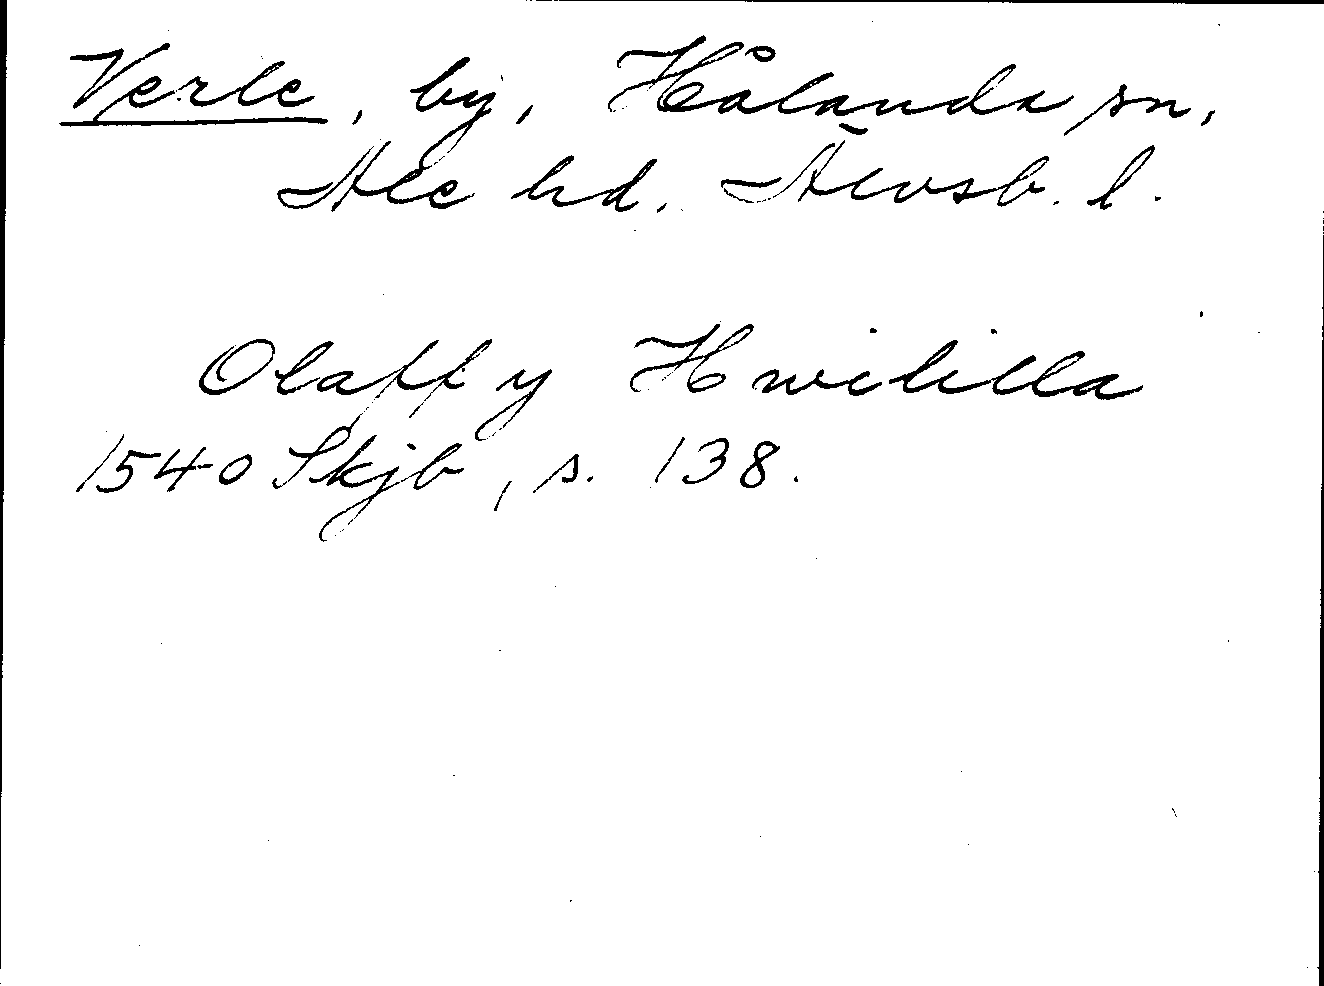 Verle, by, Hålanda sn,
Ale hd. Älvsb. l.
Olaff y Hwililla
1540 Skjb, s. 138.